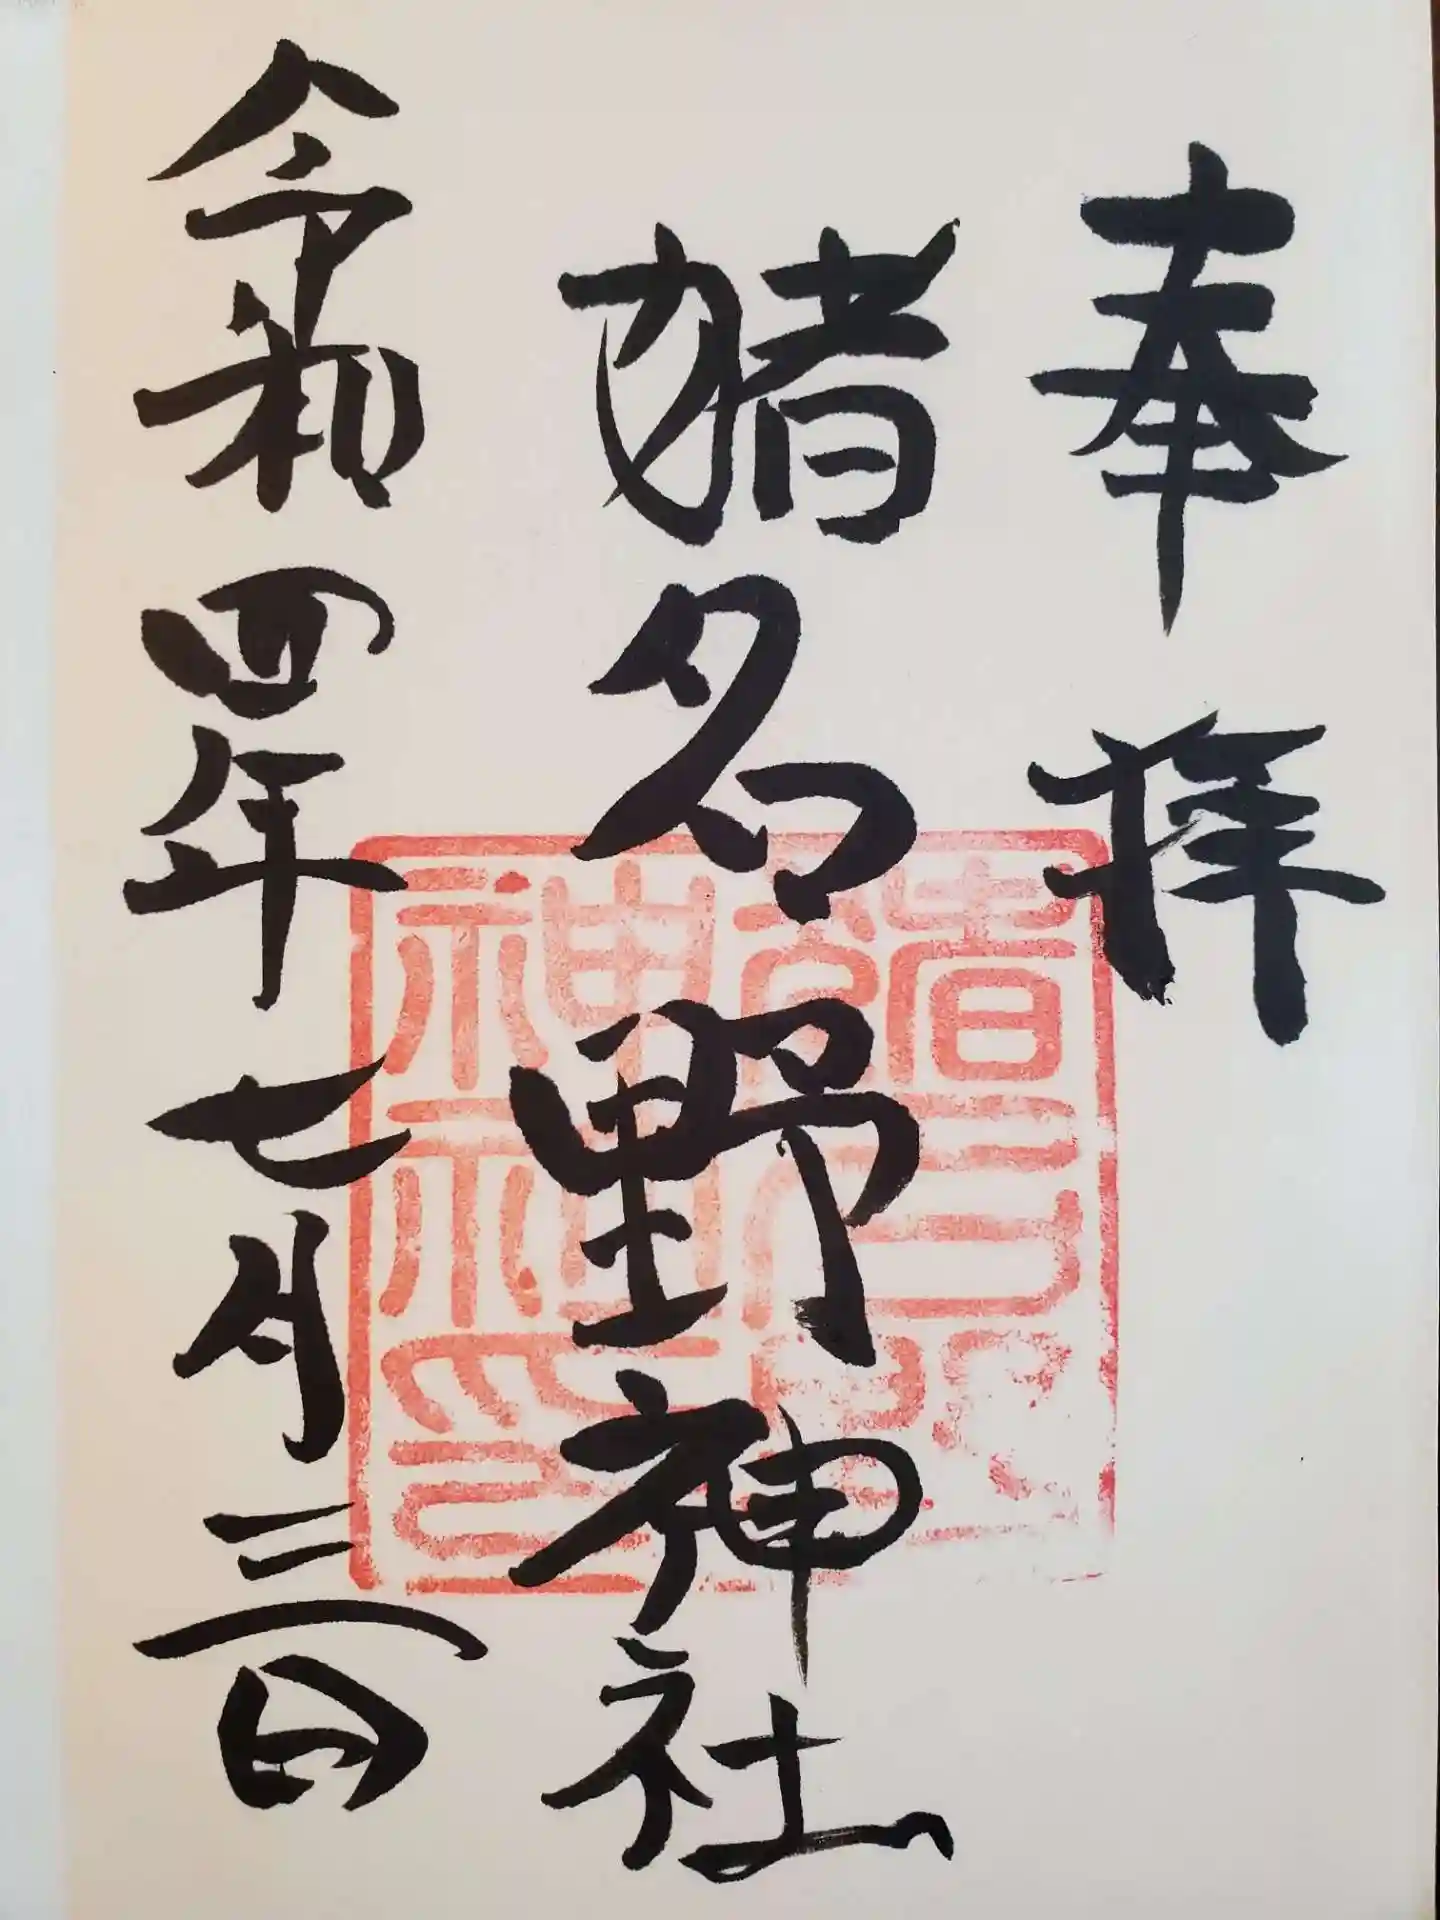 奉拝
猪名野神社
令和四年七月三日
猪名野
神社印